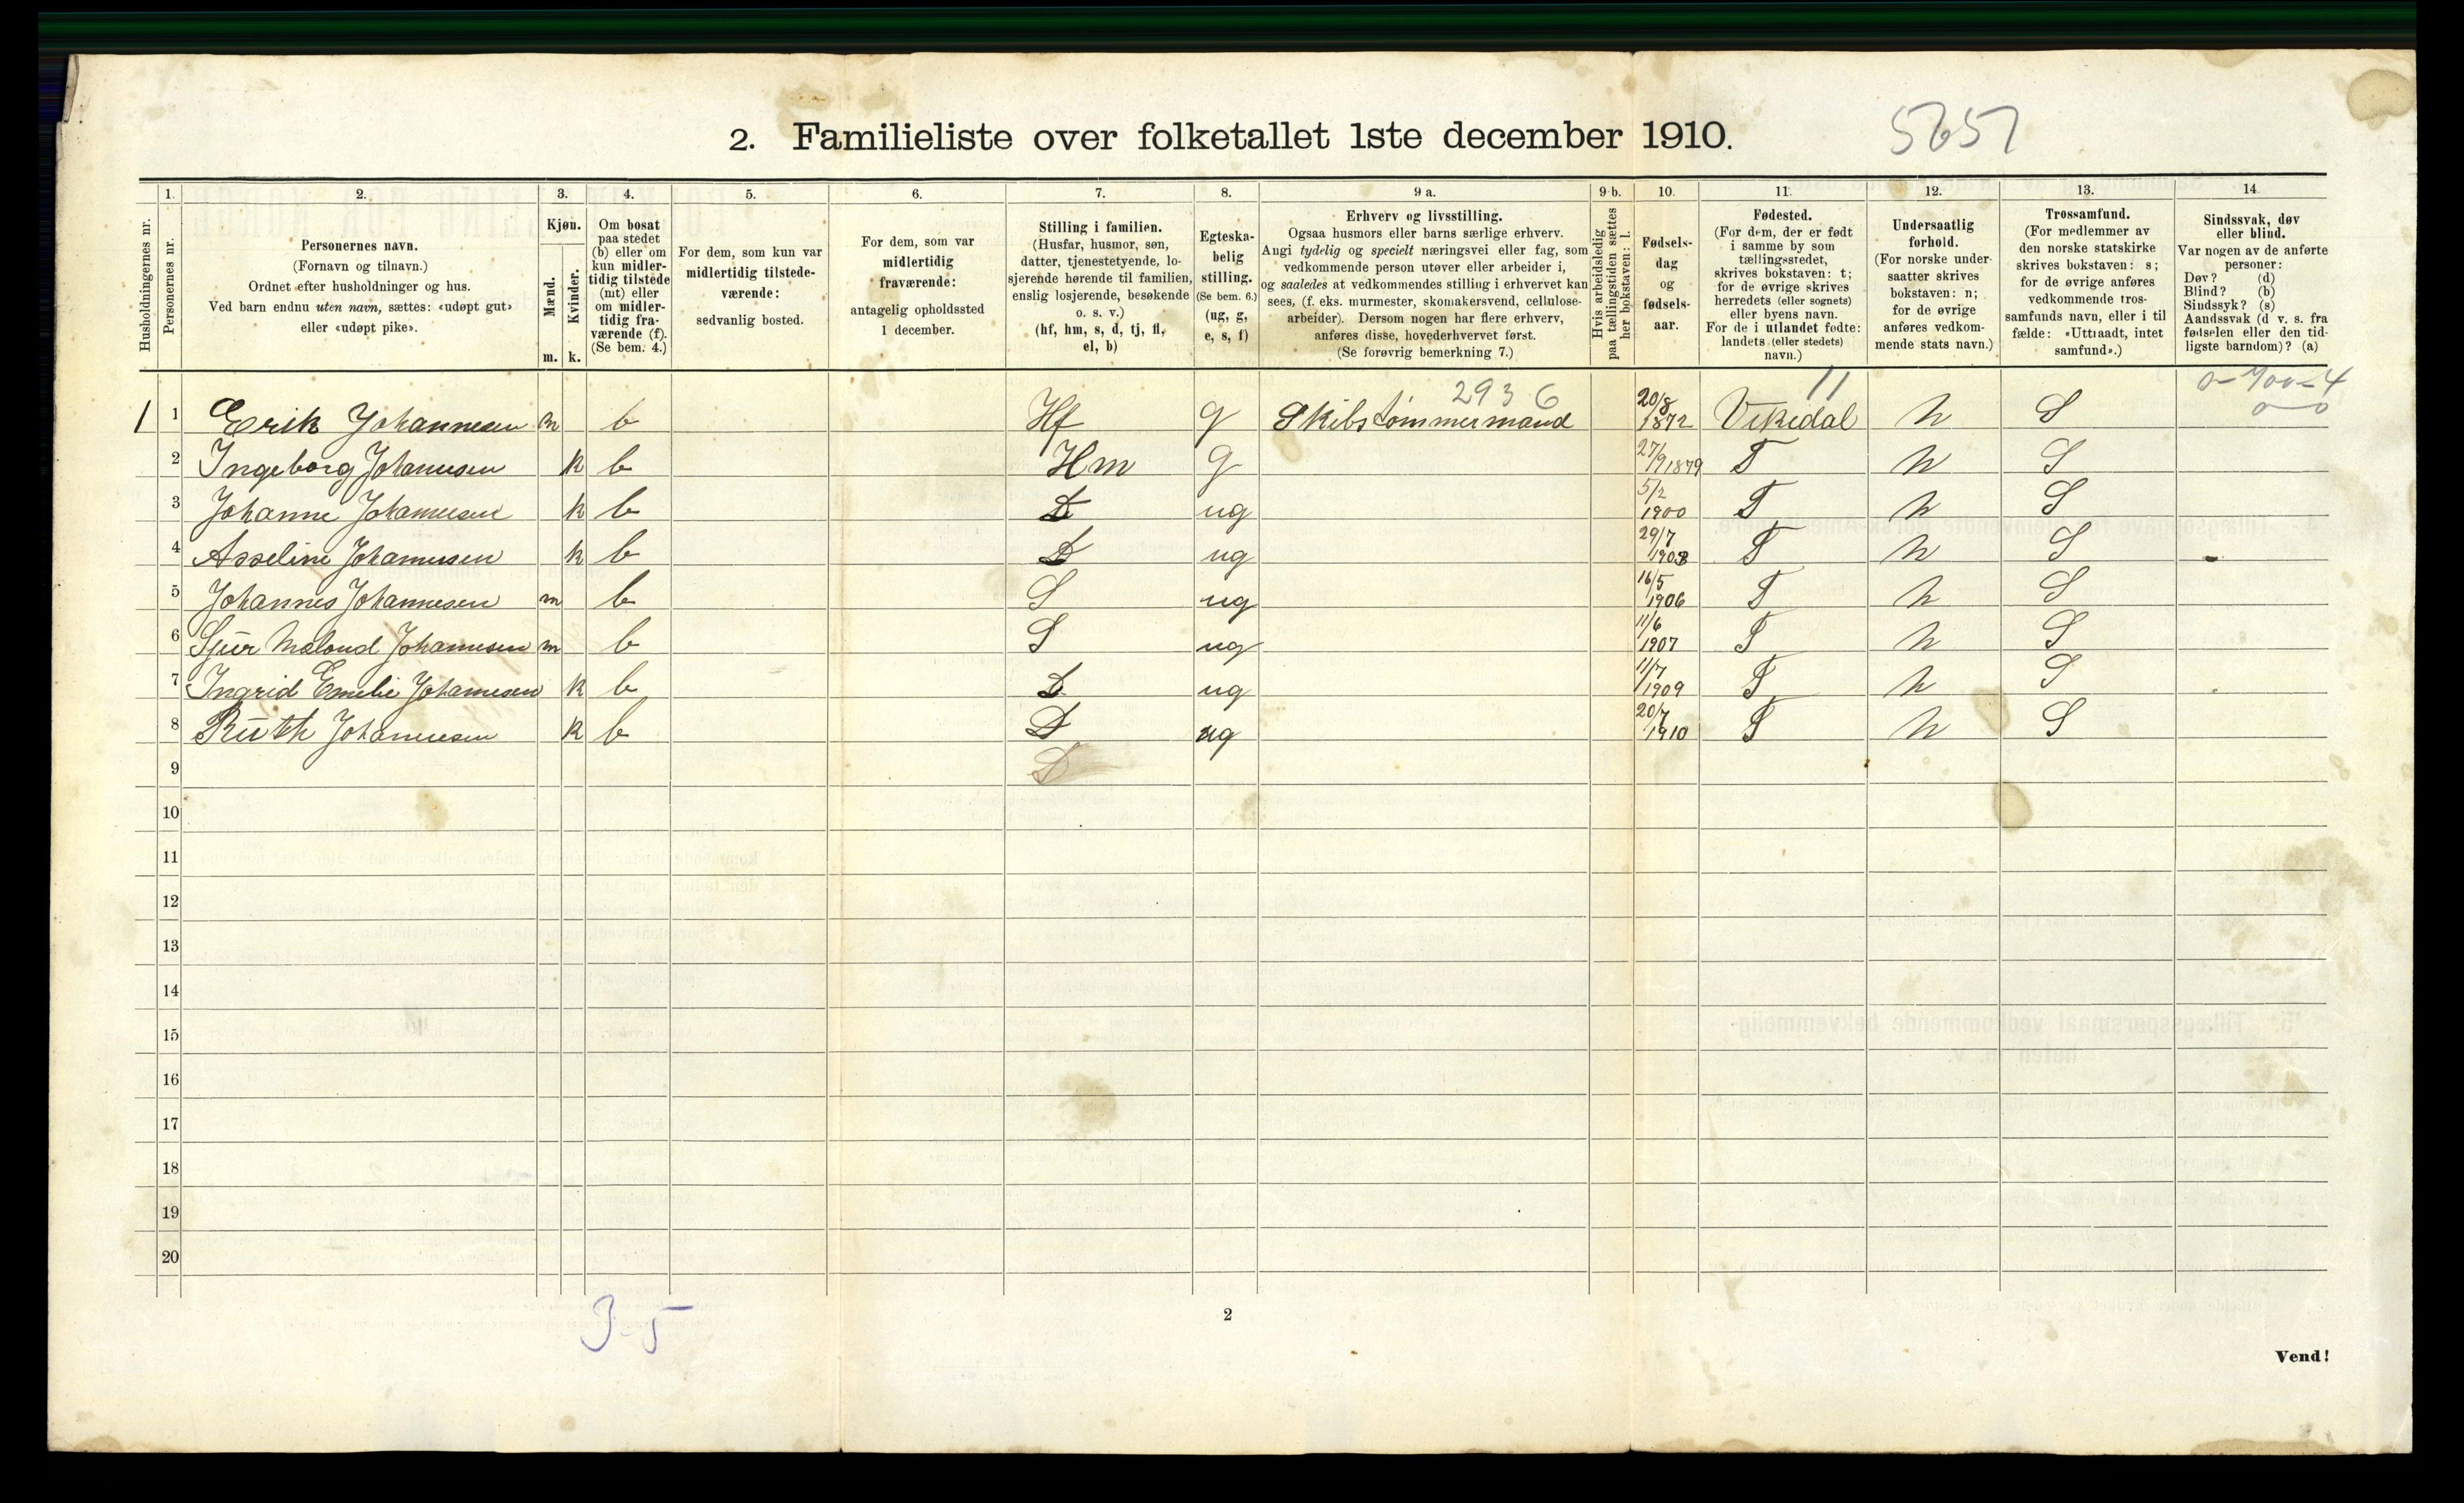 2. Familieliste over folketallet 1ste december 1910.
5651
1.
2.
3.
4.
5.
6.
7.
8.
9 a.
9 b.
10.
11.
12.
13.
14.
Husholdningernes nr.
Personernes nr.
Personernes navn.
(Fornavn og tilnavn.)
Ordnet efter husholdninger og hus.
Ved barn endnu uten navn, sættes: «udøpt gut»
eller «udøpt pike».
Kjøn.
Mænd.
m.
Kvinder.
k.
Om bosat
paa stedet
(b) eller om
kun midler-
tidig tilstede
(mt) eller
om midler-
tidig fra-
værende (f).
(Se bem. 4.)
For dem, som kun var
midlertidig tilstede-
værende:
sedvanlig bosted.
For dem, som var
midlertidig
fraværende:
antagelig opholdssted
1 december.
Stilling i familien.
(Husfar, husmor, søn,
datter, tjenestetyende, lo-
sjerende hørende til familien,
enslig losjerende, besøkende
o. s. v.)
(hf, hm, s, d, tj, fl,
el, b)
Egteska-
belig
stilling.
(Se bem. 6.)
(ug, g,
e, s, f)
Erhverv og livsstilling.
Ogsaa husmors eller barns særlige erhverv.
Angi tydelig og specielt næringsvei eller fag, som
vedkommende person utøver eller arbeider i,
og saaledes at vedkommendes stilling i erhvervet kan
sees, (f. eks. murmester, skomakersvend, cellulose-
arbeider). Dersom nogen har flere erhverv,
anføres disse, hovederhvervet først.
(Se forøvrig bemerkning 7.)
Hvis arbeidsledig
paa tællingstiden sættes
her bokstaven: l.
Fødsels-
dag
og
fødsels-
aar.
Fødested.
(For dem, der er født
i samme by som
tællingsstedet,
skrives bokstaven: t;
for de øvrige skrives
herredets (eller sognets)
eller byens navn.
For de i utlandet fødte:
landets (eller stedets)
navn.)
Undersaatlig
forhold.
(For norske under-
saatter skrives
bokstaven: n;
for de øvrige
anføres vedkom-
mende stats navn.)
Trossamfund.
(For medlemmer av
den norske statskirke
skrives bokstaven: s;
for de øvrige anføres
vedkommende tros-
samfunds navn, eller i til
fælde: «Uttraadt, intet
samfund».)
Sindssvak, døv
eller blind.
Var nogen av de anførte
personer:
Døv? (d)
Blind? (b)
Sindssyk? (s)
Aandssvak (d v. s. fra
fødselen eller den tid-
ligste barndom)? (a)
2936
11
0-700-4
0-0
1 1 Erik Johannesen m b Hf g Skibstømmermand 20/8 1872 Vikedal n S
2 Ingeborg Johannesen k b Hm g 27/9 1879 T n S
3 Johanne Johannesen k b D ug 5/2 1900 T n S
4 Asseline Johannesen k b D ug 29/7 1903 T n S
5 Johannes Johannesen m b S ug 16/5 1906 T n S
6 Sjur Meland Johannesen m b S ug 11/6 1907 T n S
7 Ingrid Emelie Johannesen k b D ug 11/7 1909 T n S
8 Ruth Johannesen k b D ug 20/7 1910 T n S
9 D
10
11
12
13
14
15
16
17
18
19
20
3-5
2
Vend!